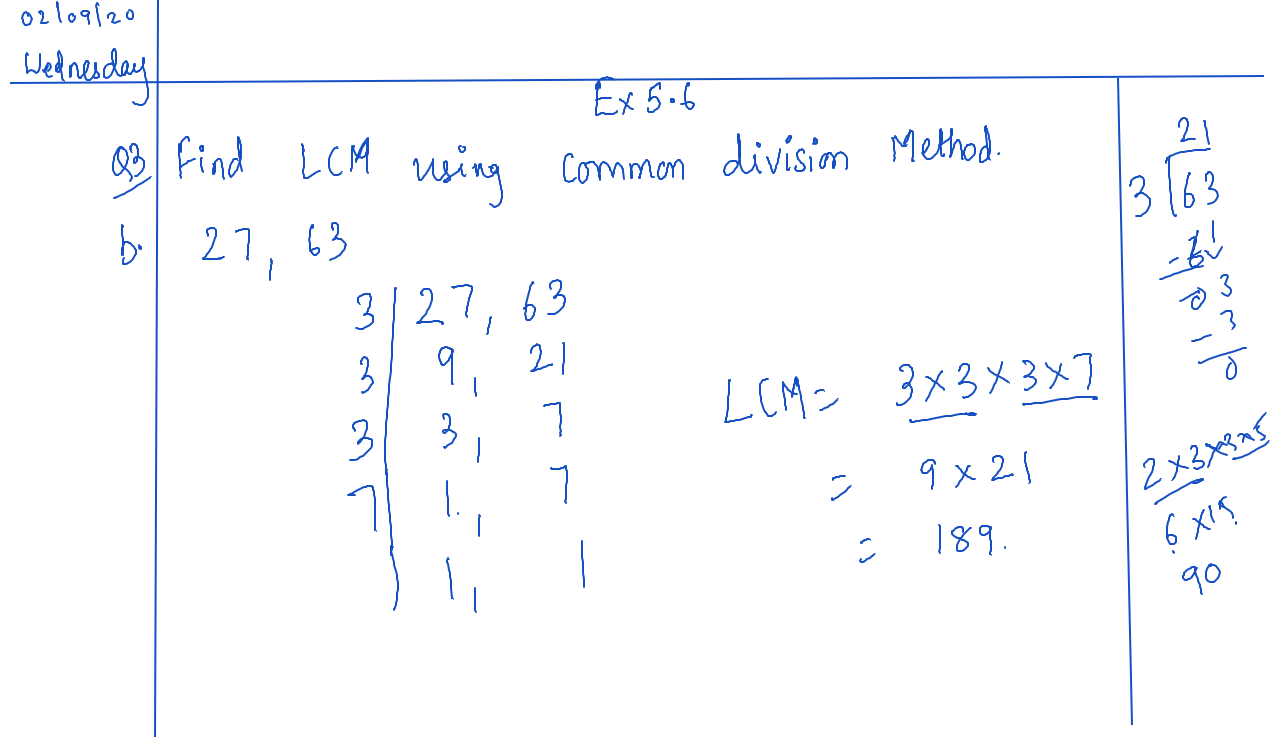 02/09/20
Wednesday
Ex 5.6
Q3 Find LCM using common division Method.
b. 27, 63
3 | 27, 63
3 | 9, 21
3 | 3, 7
7 | 1, 7
| 1, 1
LCM = 3 × 3 × 3 × 7
= 9 × 21
= 189.
21
3 63
- 6
0 3
- 3
0
2 × 3 × 3 × 5
6 × 15
90